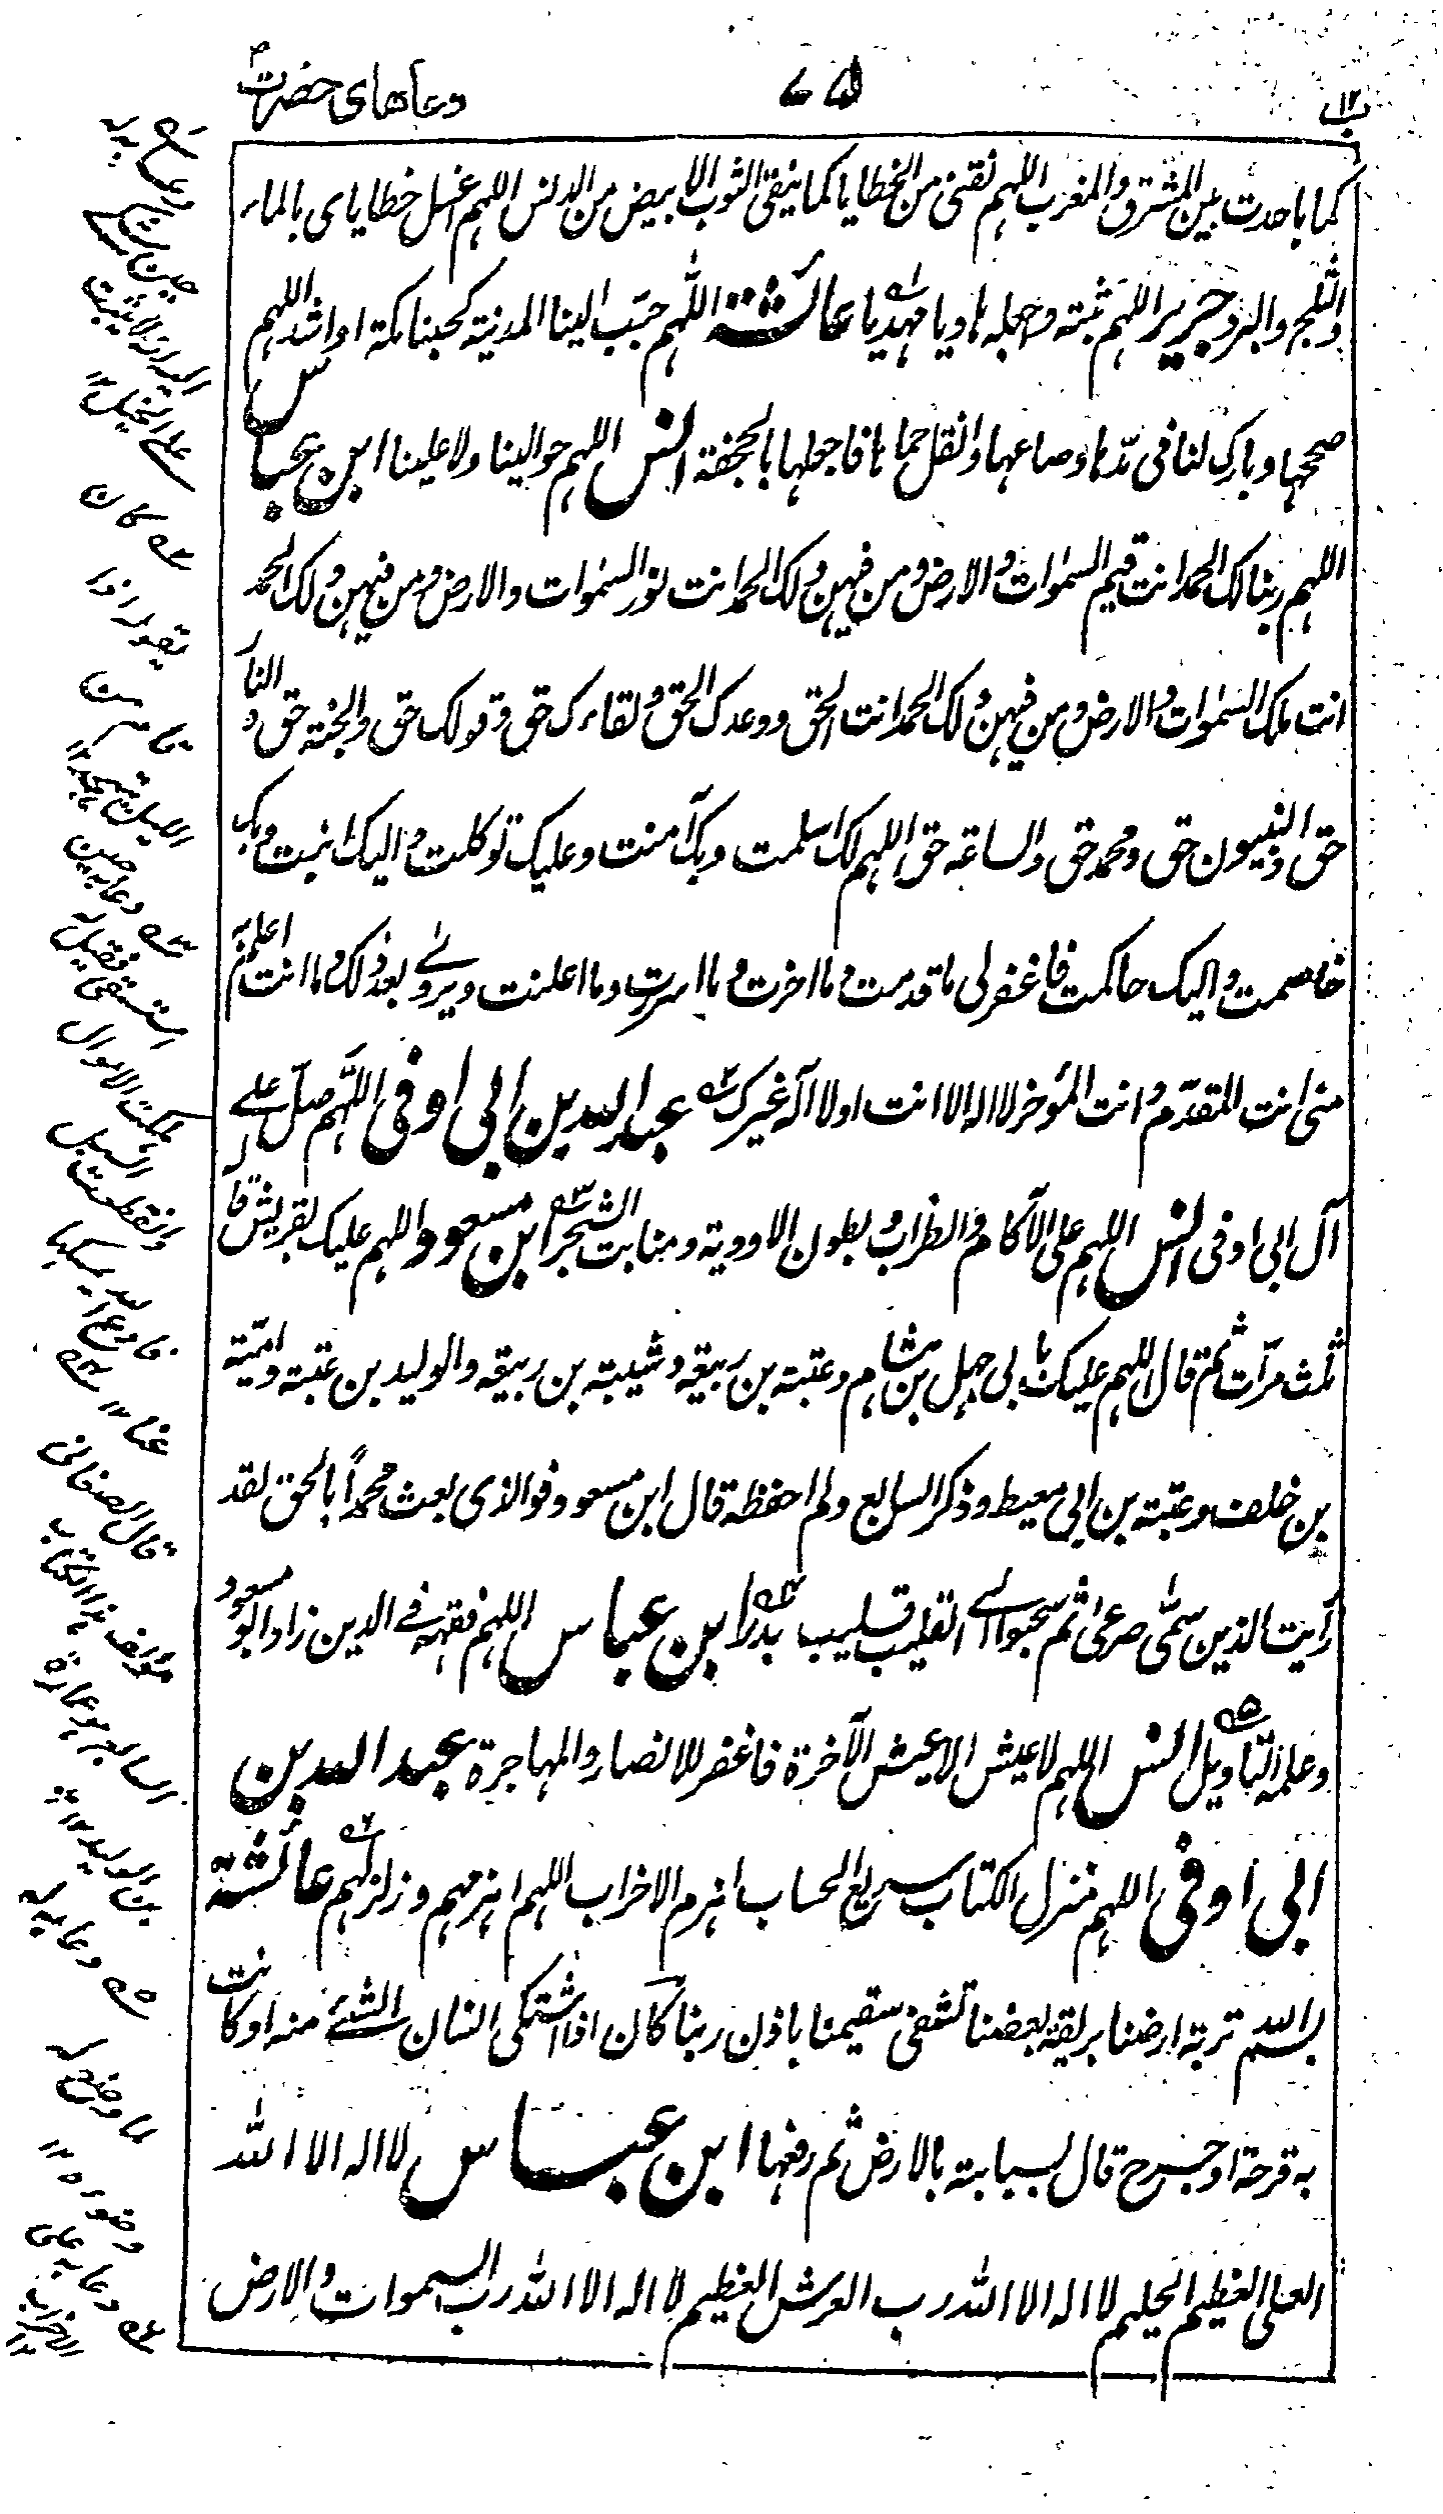 دعاهای حضرت
باب ۱۲
كما باحدت بين المشرق والمغرب اللهم نقنى من الخطايا كما ينقى الثوب الابيض من الدنس اللهم اغسل خطاياى بالماء
والثلج والبرد جرير اللهم ثبته واجعله هاديا مهديا عائشة اللهم حبّب الينا المدينة كحبنا مكة او اشد اللهم
صححها وبارك لنا فى مدّها وصاعها وانقل حماها فاجعلها بالجحفة انس اللهم حوالينا ولا علينا ابن عباس
اللهم ربنا لك الحمد انت قيم السموات والارض ومن فيهن ولك الحمد انت نور السموات والارض ومن فيهن ولك الحمد
انت ملك السموات والارض ومن فيهن ولك الحمد انت الحق ووعدك الحق ولقاءك حق وقولك حق والجنة حق والنار
حق والنبيون حق ومحمد حق والساعة حق اللهم لك اسلمت وبك آمنت وعليك توكلت واليك انبت وبك
خاصمت واليك حاكمت فاغفرلى ما قدمت وما اخرت وما اسررت وما اعلنت ويروى بعد ذلك وما انت اعلم به
منى انت المقدّم وانت المؤخر لا اله الا انت اولا اله غيرك عبد الله بن ابى اوفى اللهم صلّ على
آل ابى اوفى انس اللهم على الآكام والظراب وبطون الاودية ومنابت الشجر ابن مسعود اللهم عليك بقريش قاله
ثلث مرّات ثم قال اللهم عليك بابى جهل بن هشام وعتبة بن ربيعة وشيبة بن ربيعة والوليد بن عتبة واميّة
بن خلف وعقبة بن ابى معيط وذكر السابع ولم احفظه قال ابن مسعود فوالذى بعث محمداً بالحق لقد
رأيت الذين سمّى صرعى ثم سحبوا الى القليب قليب بدر ابن عباس اللهم فقهه فى الدين زاد ابو مسعود
وعلمه التاويل انس اللهم لا عيش الا عيش الآخرة فاغفر للانصار والمهاجرة عبد الله بن
ابى اوفى اللهم منزل الكتاب سريع الحساب اهزم الاحزاب اللهم اهزمهم وزلزلهم عائشة
بسم الله تربة ارضنا بريقة بعضنا تشفى سقيمنا باذن ربنا كان اذا اشتكى انسان الشئ منه او كانت
به قرحة او جرح قال بسبابته بالارض ثم رفعها ابن عباس لا اله الا الله
العلى العظيم الحليم لا اله الا الله رب العرش العظيم لا اله الا الله رب السموات والارض
حين شكى
اليه انه لا يثبت
على الخيل ۱۲
كان
يقول اذا
قام من
الليل يتهجد ۱۲
دعا به حين
استسقى فقيل له
هلكت الاموال
وانقطعت السبل
فادع الله يمسكها
عنا ۱۲
قال الصغانى
مؤلف هذا الكتاب
السابع هو عمارة
بن الوليد ۱۲
دعا به له
لما وضع له
وضوءه ۱۲
دعا به على
الاحزاب ۱۲